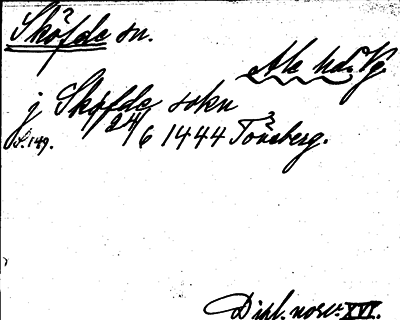 Sköfde sn.
Ale hd. Vg
j Sköfde sokn
s. 149. 24/6 1444 Tönsberg.
Dipl. norv. XVI.